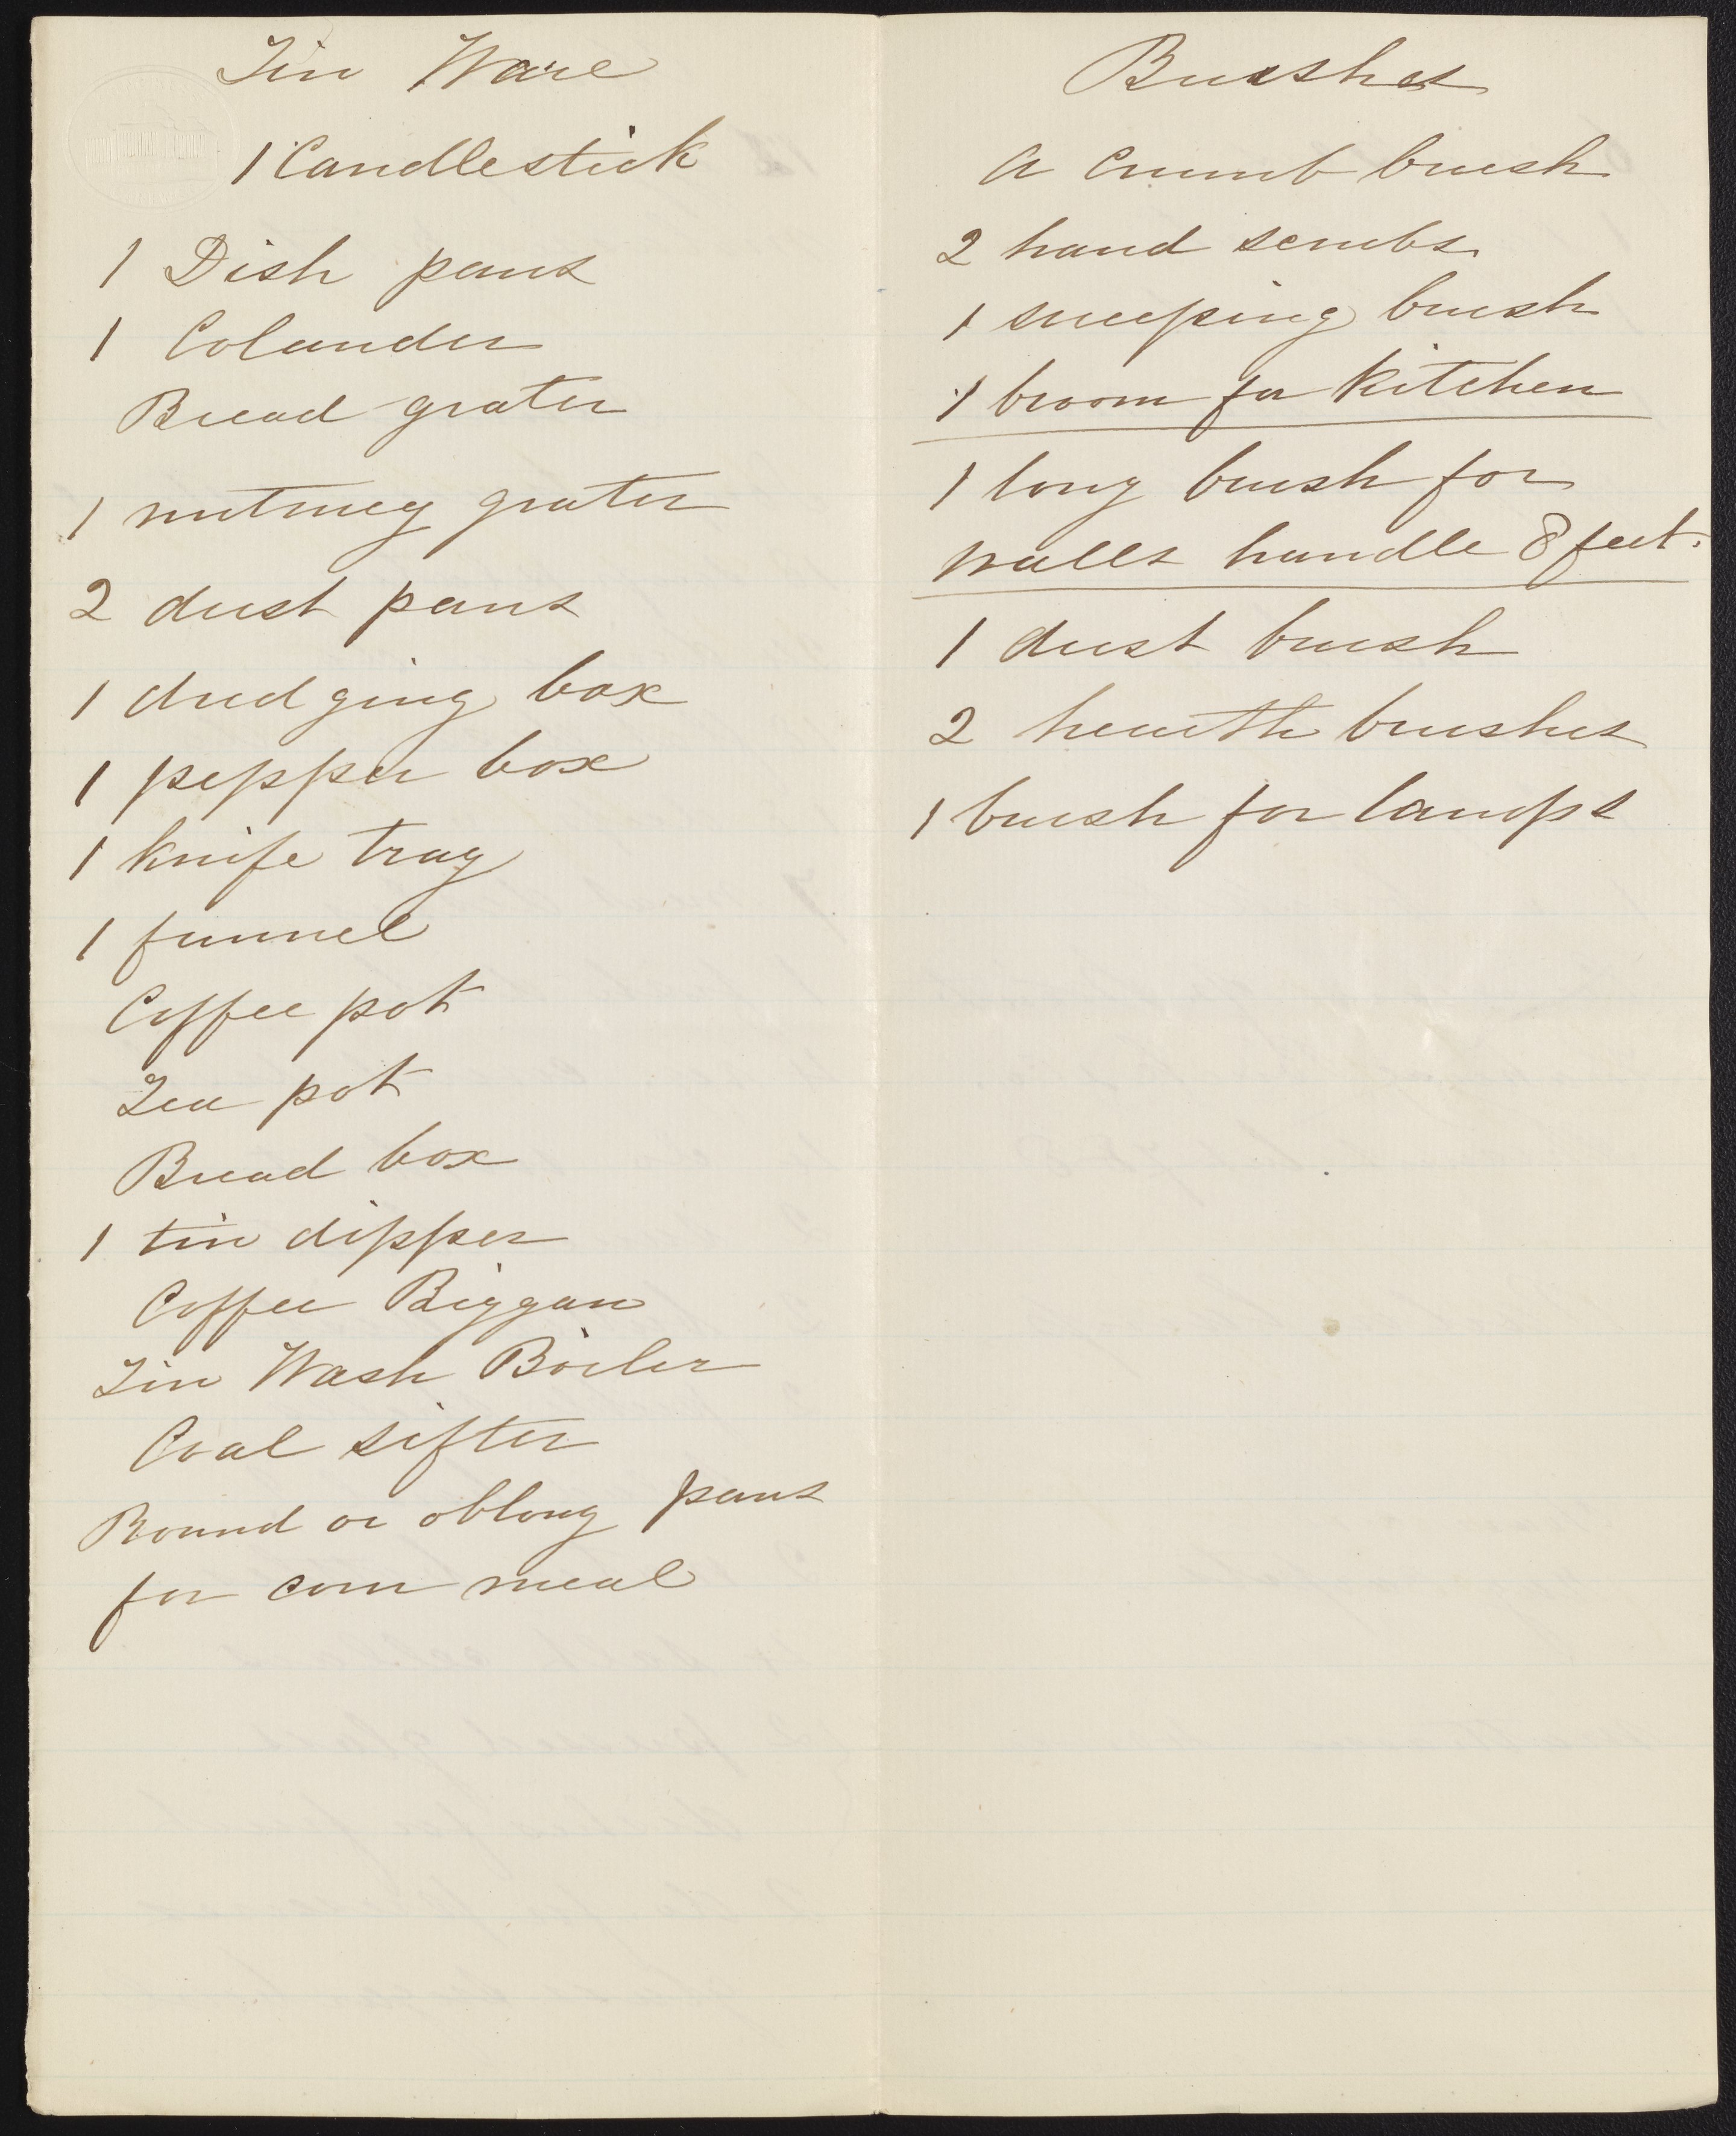 Tin Ware
1 Candlestick
1 Dish pans
1 Colander
Bread grater
1 nutmeg grater
2 dust pans
1 drudging box
1 pepper box
1 knife tray
1 funnel
Coffee pot
Tea pot
Bread box
1 tin dipper
Coffee Biggan
Tin Wash Boiler
Coal sifter
Round or oblong pans
for corn meal
Brushes
a crumb brush
2 hand scrubs
1 sweeping brush
1 broom for Kitchen
1 long brush for
walls handle 8 feet.
1 dust brush
2 hearth brushes
1 brush for lamps